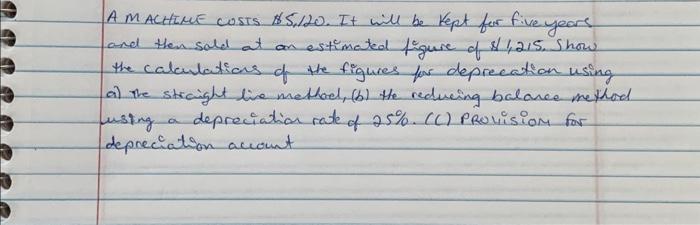 A MACHINE COSTS $5,120. It will be kept for five years
and then sold at an estimated figure of $1,215. Show
the calculations of the figures for deprecation using
a) the straight live method, (b) the reducing balance method
using a depreciation rate of 25%. (C) PROVISION for
depreciation account